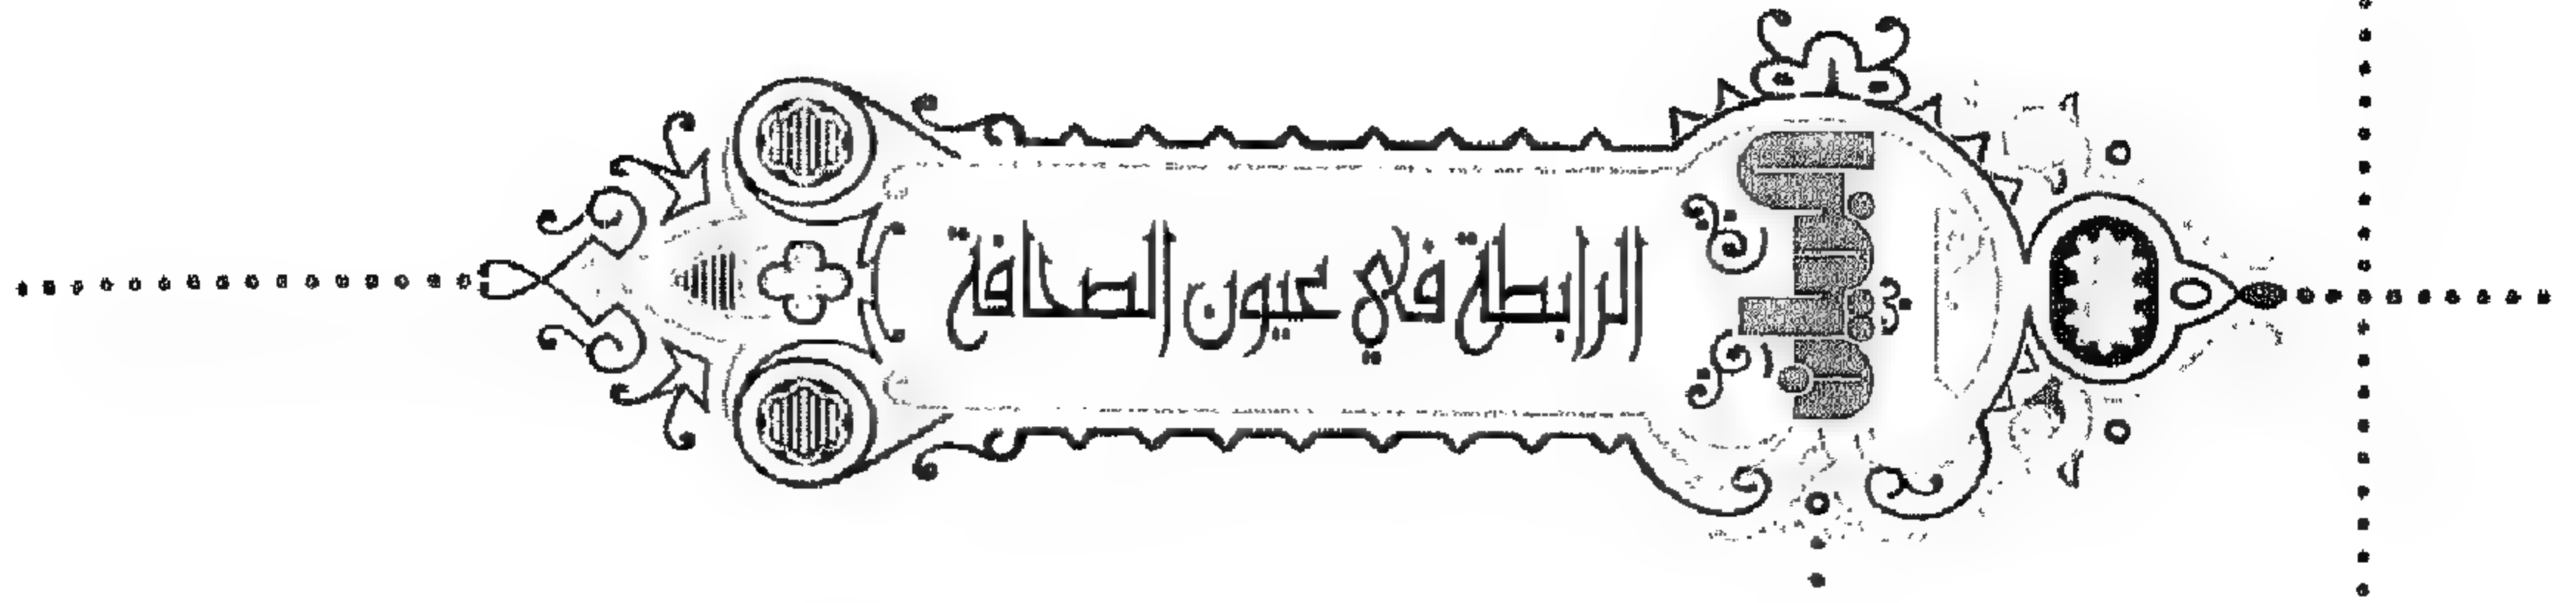 الرابطة في عيون الصحافة